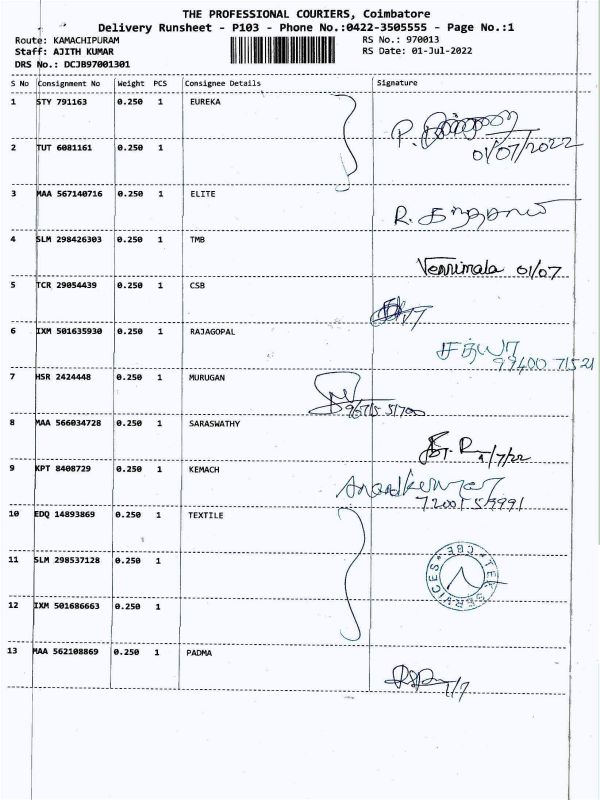 THE PROFESSIONAL COURIERS, Coimbatore
Delivery Runsheet - P103 - Phone No.:0422-3505555 - Page No.:1
Route: KAMACHIPURAM RS No.: 970013
Staff: AJITH KUMAR RS Date: 01-Jul-2022
DRS No.: DCJB97001301
S No Consignment No Weight PCS Consignee Details Signature
1 STY 791163 0.250 1 EUREKA
P.
01/07/2022
2 TUT 6081161 0.250 1
3 MAA 567140716 0.250 1 ELITE
R.
4 SLM 298426303 0.250 1 TMB
Vennimala 01/07
5 TCR 29054439 0.250 1 CSB
6 IXM 501635930 0.250 1 RAJAGOPAL
சத்யா
99400 71521
7 HSR 2424448 0.250 1 MURUGAN
8 MAA 566034728 0.250 1 SARASWATHY
1/7/22
9 KPT 8408729 0.250 1 KEMACH
Anandkumar
10 EDQ 14893869 0.250 1 TEXTILE
11 SLM 298537128 0.250 1
TEX SERVICES * CBE *
12 IXM 501686663 0.250 1
13 MAA 562108869 0.250 1 PADMA
1/7